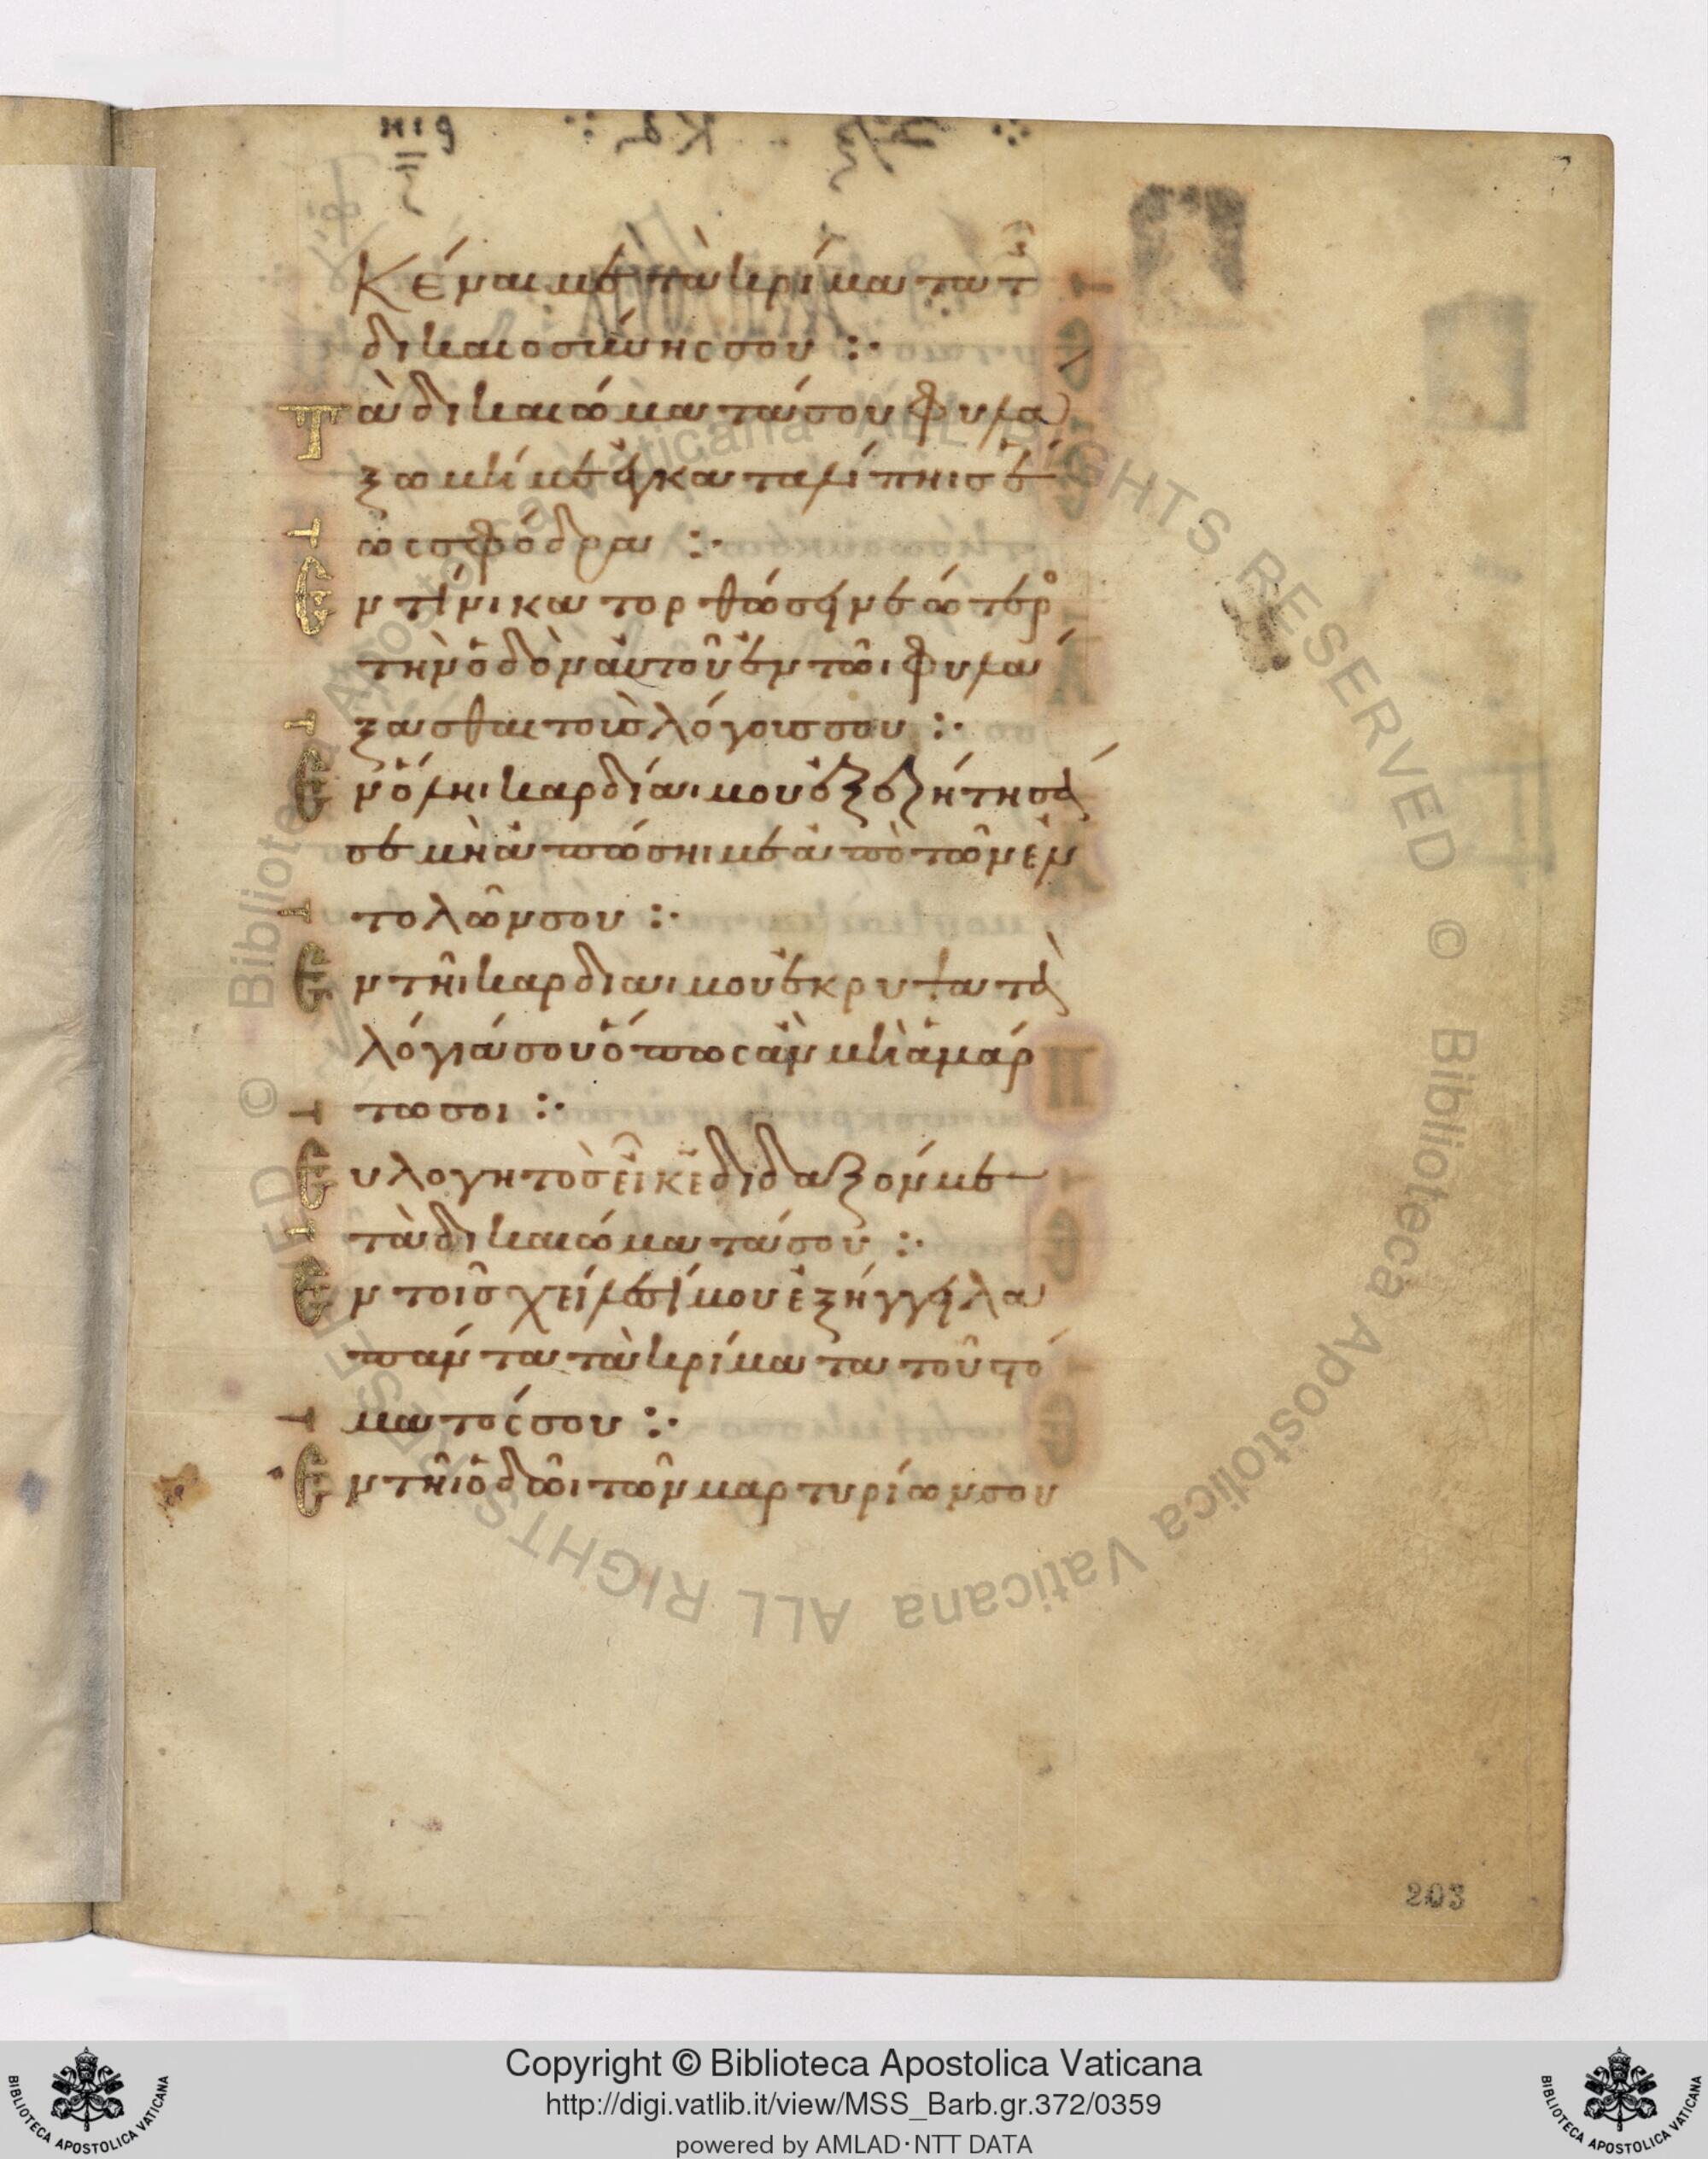 κέναι με τὰ κρίματα τῆς
δικαιοσύνης σου :·
Τὰ δικαιώματά σου φυλά
ξω μή με ἐγκαταλίπηις ἕ
ως σφόδρα :·
Ἐν τίνι κατορθώσει νεώτερος
τὴν ὁδὸν αὐτοῦ ἐν τῶι φυλά
ξασθαι τοὺς λόγους σου :·
Ἐν ὅληι καρδίαι μου ἐξεζήτησά
σε μὴ ἀπώσηι με ἀπὸ τῶν ἐν
τολῶν σου :·
Ἐν τῆι καρδίαι μου ἔκρυψα τὰ
λόγιά σου ὅπως ἂν μὴ ἁμάρ
τω σοι :·
Εὐλογητὸς εἶ κε δίδαξόν με
τὰ δικαιώματά σου :·
Ἐν τοῖς χείλεσί μου ἐξήγγειλα
πάντα τὰ κρίματα τοῦ στό
ματός σου :·
Ἐν τῆι ὁδῶι τῶν μαρτυρίων σου
203
© Biblioteca Apostolica Vaticana ALL RIGHTS RESERVED © Biblioteca Apostolica Vaticana ALL RIGHTS RESERVED
Copyright © Biblioteca Apostolica Vaticana
http://digi.vatlib.it/view/MSS_Barb.gr.372/0359
powered by AMLAD·NTT DATA
BIBLIOTECA APOSTOLICA VATICANA
BIBLIOTECA APOSTOLICA VATICANA